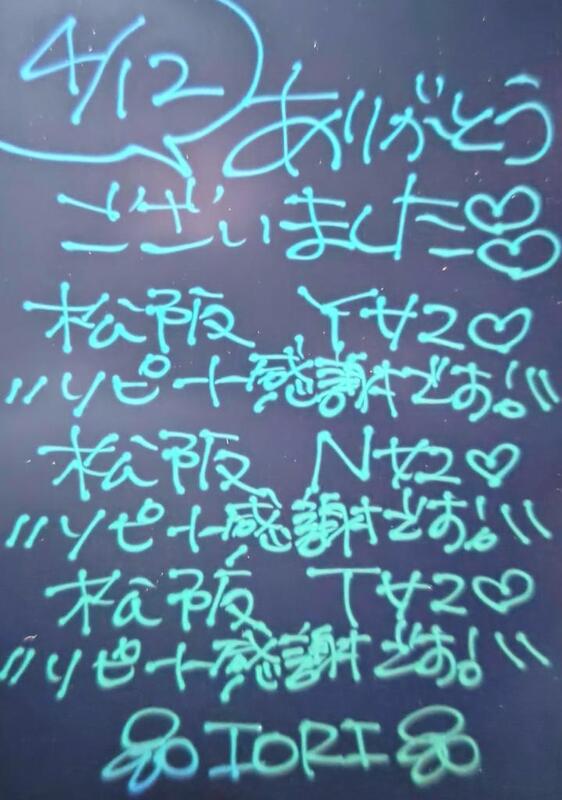 4/12
ありがとう
ございました♡♡
松阪 Yサン♡
〃リピート感謝です!〃
松阪 Nサン♡
〃リピート感謝です!〃
松阪 Tサン♡
〃リピート感謝です!〃
IORI